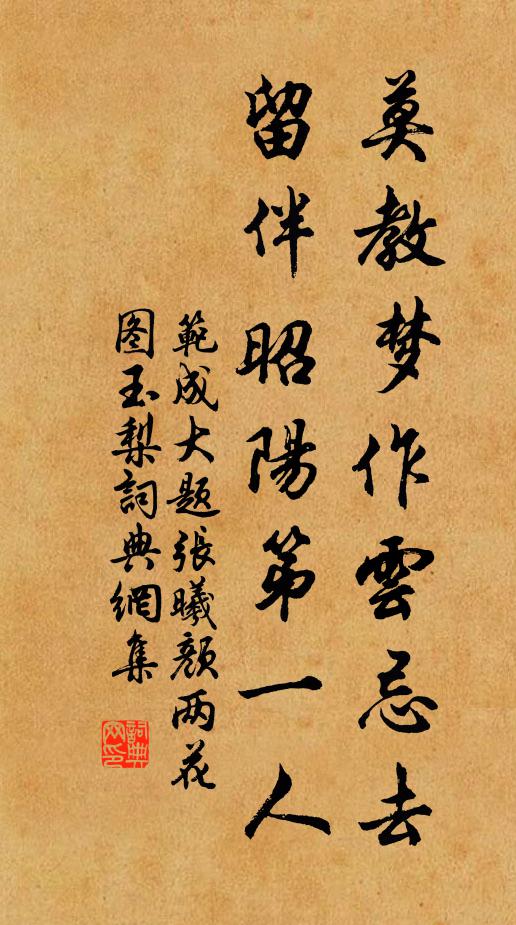 莫教梦作雲忌去
留伴昭陽第一人
範成大题張曦颜两花
图玉梨詞典網集
詞典网印